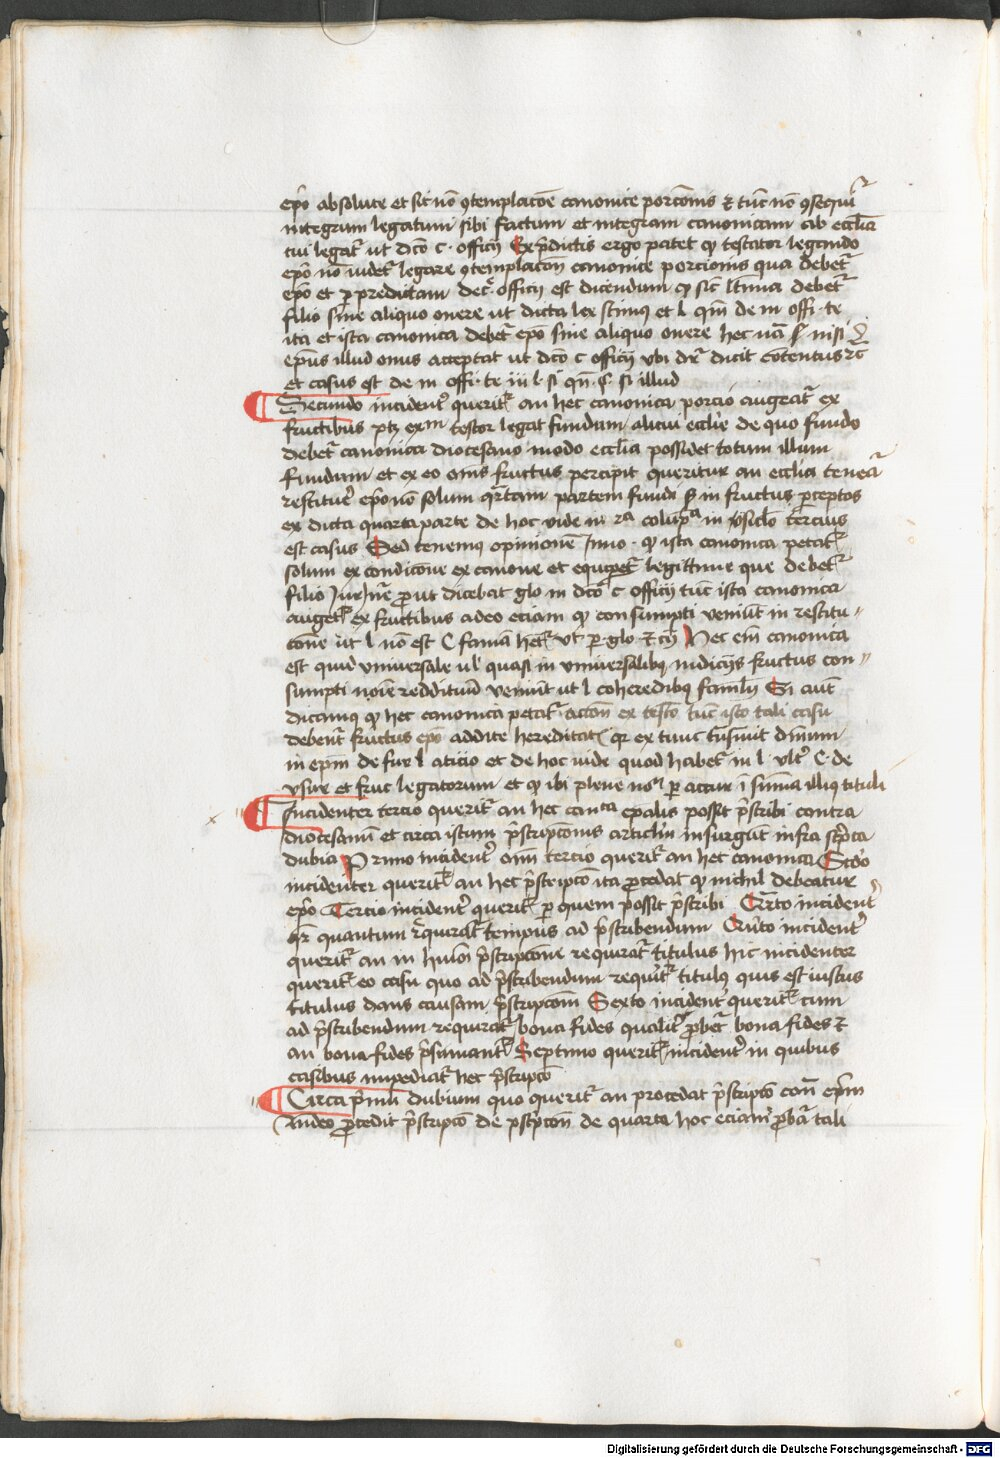 ep̄o absolute et sic nō ꝯtemplac̄oe canonice porc̄onis ⁊ tūc nō ꝯsequit᷑
integrum legatum sibi factum et integram canonicam ab eccl̄ia
cui legat᷑ ut dc̄o c. officij Ex p̄dictis ergo patet ꝙ testator legando
ep̄o nō uidet᷑ legare ꝯtemplac̄oni canonice porcionis qua debet᷑
ep̄o et ꝑ predictam dec̄. officij est dicendum ꝙ sic l̄tima debet᷑
filio sine aliquo onere ut dicta lex scimus et l. qm̄ de in offi. te
ita et ista canonica debet᷑ ep̄o sine aliquo onere hec uā nisi
ep̄us illud onus acceptat ut dc̄o c officij vbi dr̄ dicit contentus ⁊c̄
et casus est de in offi. te iij l. si qn̄. §. si illud
Secundo incident᷑ querit᷑ an hec canonica porcio augeat᷑ ex
fructibus ptꝫ exm testor legat fundum alicui eccl̄ie de quo fundo
debet᷑ canonica diocesano modo ecclesia possidet totum illum
fundum et ex eo om̄s fructus percipit queritur an eccl̄ia teneat᷑
restitue᷑ ep̄o nō solum qr̄tam partem fundi s̄ in fructus ꝑceptos
ex dicta quarta parte de hoc vide in rᵃ colūpᵃ in v̄siclo tercius
est casus Sed tenemꝰ opinionē Inno. ꝙ ista canonica petat᷑
solum ex condicione ex canone et equipet᷑ legittime que debet᷑
filio Iur̄ ne ꝓut dicebat glo in dc̄o c officij tūc ista canonica
auget᷑ ex fructibus adeo eciam ꝙ consumpti veniūt in restitu-
cōne ut l. nō est C famam het᷑ ut ꝑ glo ⁊ cij Nec em̄ canonica
est quid vniuersale ul̄ quasi in vniuersalibꝰ iudicijs fructus con-
sumpti noīe reddituū veniūt ut l coheredibꝰ familij Si aūt
dicamꝰ ꝙ hec canonica petat᷑ actōn ex testo tūc isto tali casu
debent᷑ fructus ep̄o addite hereditati qr̄ ex tunc tn̄siuit dn̄ium
in ep̄m de fur l aticio et de hoc vide quod habet᷑ in l. vlt᷑ C. de
vsur et fruc legatorum et ꝙ ibi plene noᵗ ꝑ accur̄ ī summa illiꝰ tituli
Incidenter tercio querit᷑ an hec canᶜᵃ ep̄alis possit p̄scribi contra
diocesanū et circa istum p̄scripc̄onis articlm̄ insurgūt infra scp̄ta
dubia Primo incident᷑ cum̄ tercio querit᷑ an hec canonica Sc̄do
incidenter querit᷑ an hec p̄scripc̄o ita ꝓcedat ꝙ nichil debeatur
ep̄o Tercio incident᷑ querit᷑ ꝑ quem possit p̄scribi Qr̄to incident᷑
qr̄ quantum requirat᷑ tempus ad p̄scribendum Qn̄to incident᷑
querit᷑ an in huīoi p̄scripcōne requirat᷑ titulus hic incidenter
querit᷑ eo casu quo ad p̄scribendum requirit᷑ titulꝰ quis est iustus
titulus dans causam p̄scripc̄oni Sexto incident᷑ querit᷑ cum
ad p̄scribendum requirat᷑ bona fides qualit᷑ ꝓbet᷑ bona fides ⁊
an bona fides p̄sumant᷑ Septimo querit᷑ incident᷑ in quibus
casibus impediat᷑ hec p̄scripc̄o
Circa p̄mū dubium quo querit᷑ an procedat p̄scripc̄o conꝰ ep̄m
Uideo ꝓcedit p̄scripc̄o de pscp̄con de quarta hoc eciam ꝓbat᷑ tali
Digitalisierung gefördert durch die Deutsche Forschungsgemeinschaft - DFG